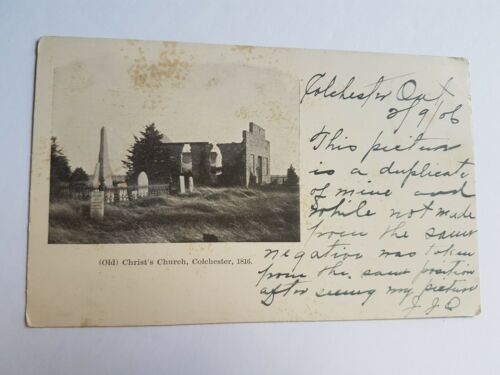 (Old) Christ's Church, Colchester, 1816.
Colchester Ont
2/9/06
This picture
is a duplicate
of mine and
while not made
from the same
negative was taken
from the same position
after seeing my picture
J.J.O